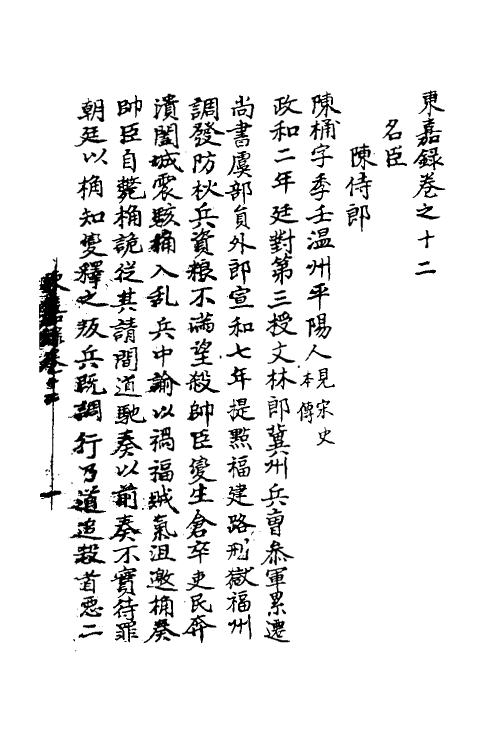 東嘉録卷之十二
名臣
陳侍郎
陳桷字季壬温州平陽人見宋史本傳
政和二年廷對第三授文林郎冀州兵曹叅軍累遷
尚書虞部貟外郎宣和七年提點福建路刑獄福州
調發防秋兵資粮不滿望殺帥臣變生倉卒吏民奔
潰闔城震駭桷入乱兵中諭以禍福贼氣沮邀桷奏
帥臣自斃桷詭從其請間道馳奏以前奏不實待罪
朝廷以桷知變釋之叛兵既調行乃道追殺首惡二
東嘉録卷之十二 一